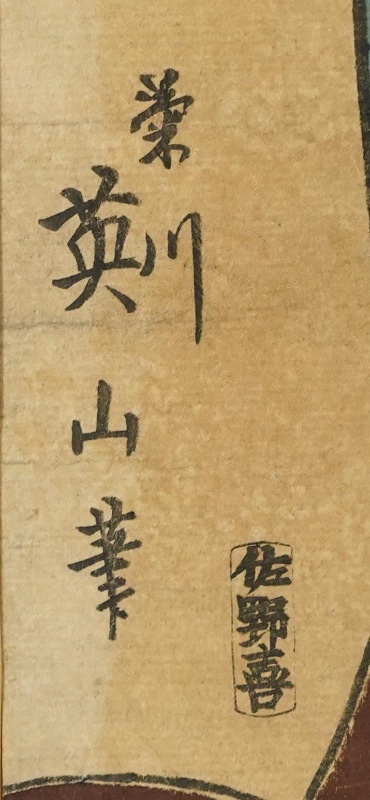 菊川
英山筆
佐野喜